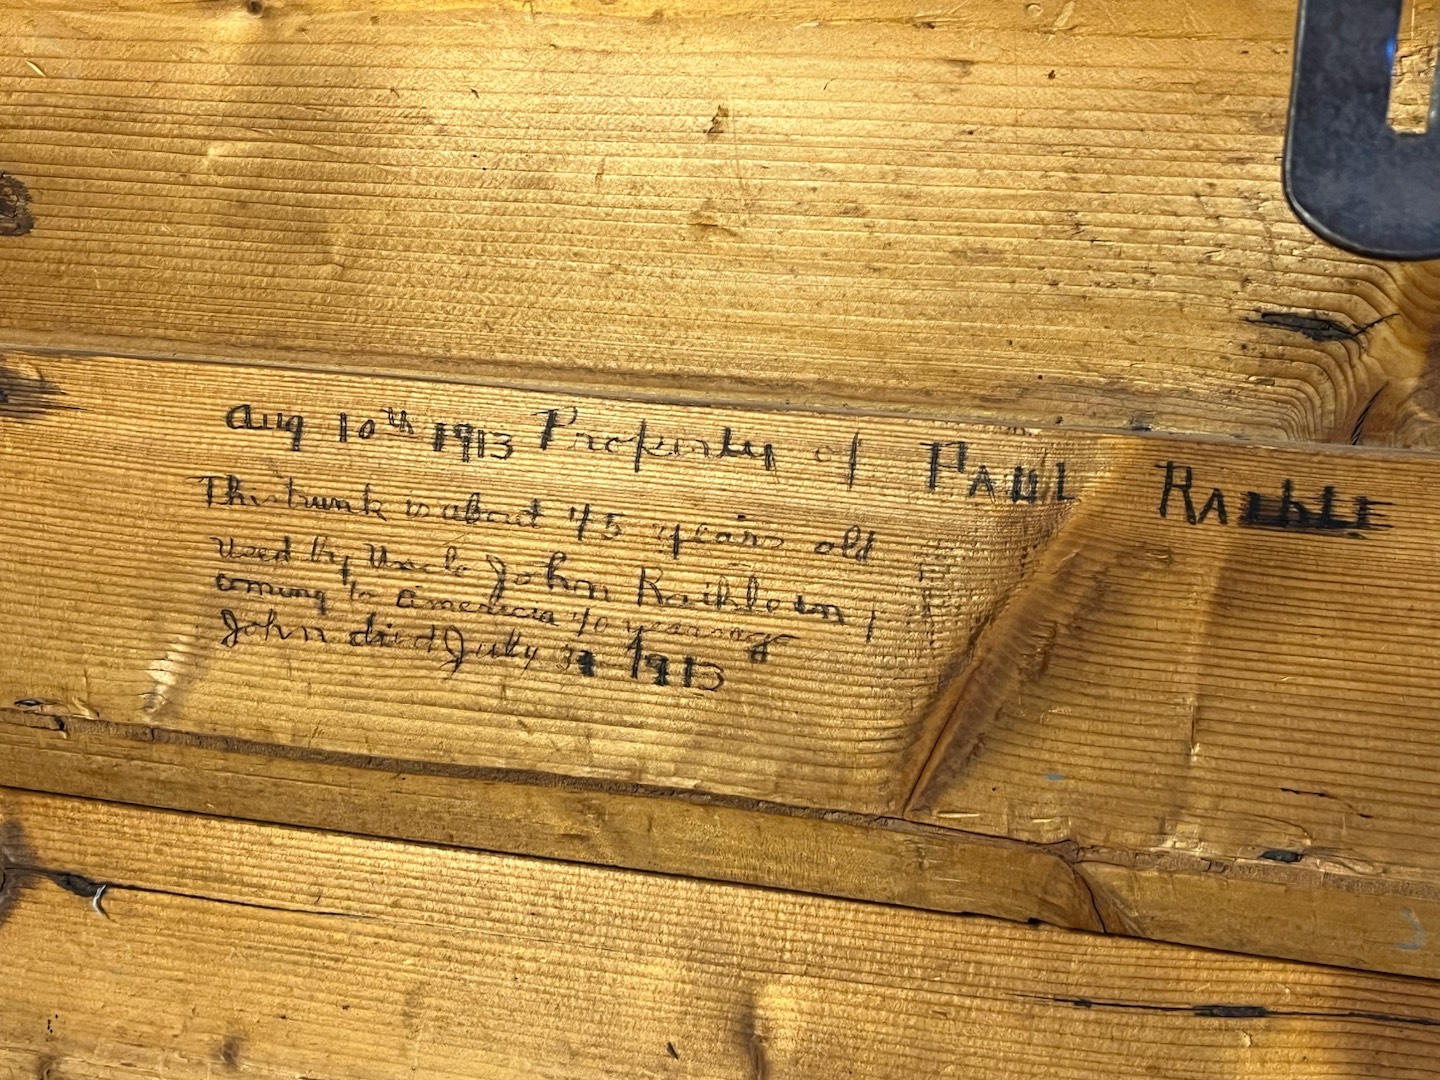 Aug 10th 1913 Property of PAUL RAIBLE
This trunk is about 45 years old
Used by Uncle John Raible in
coming to America 40 years ago
John died July 1913